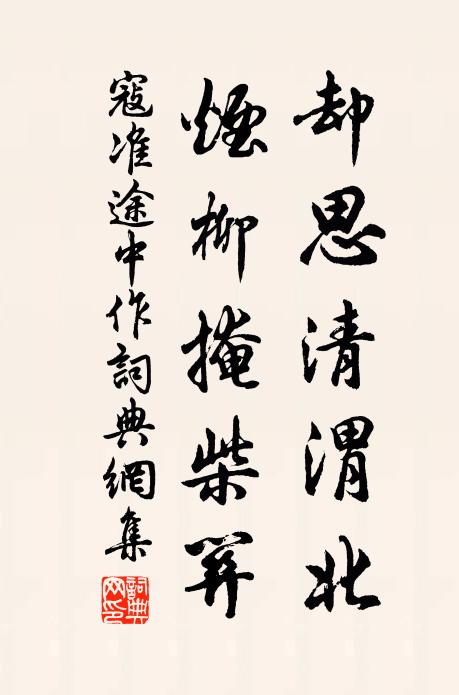 却思清渭北
煙柳掩柴關
寇准途中作詞典網集
詞典网印